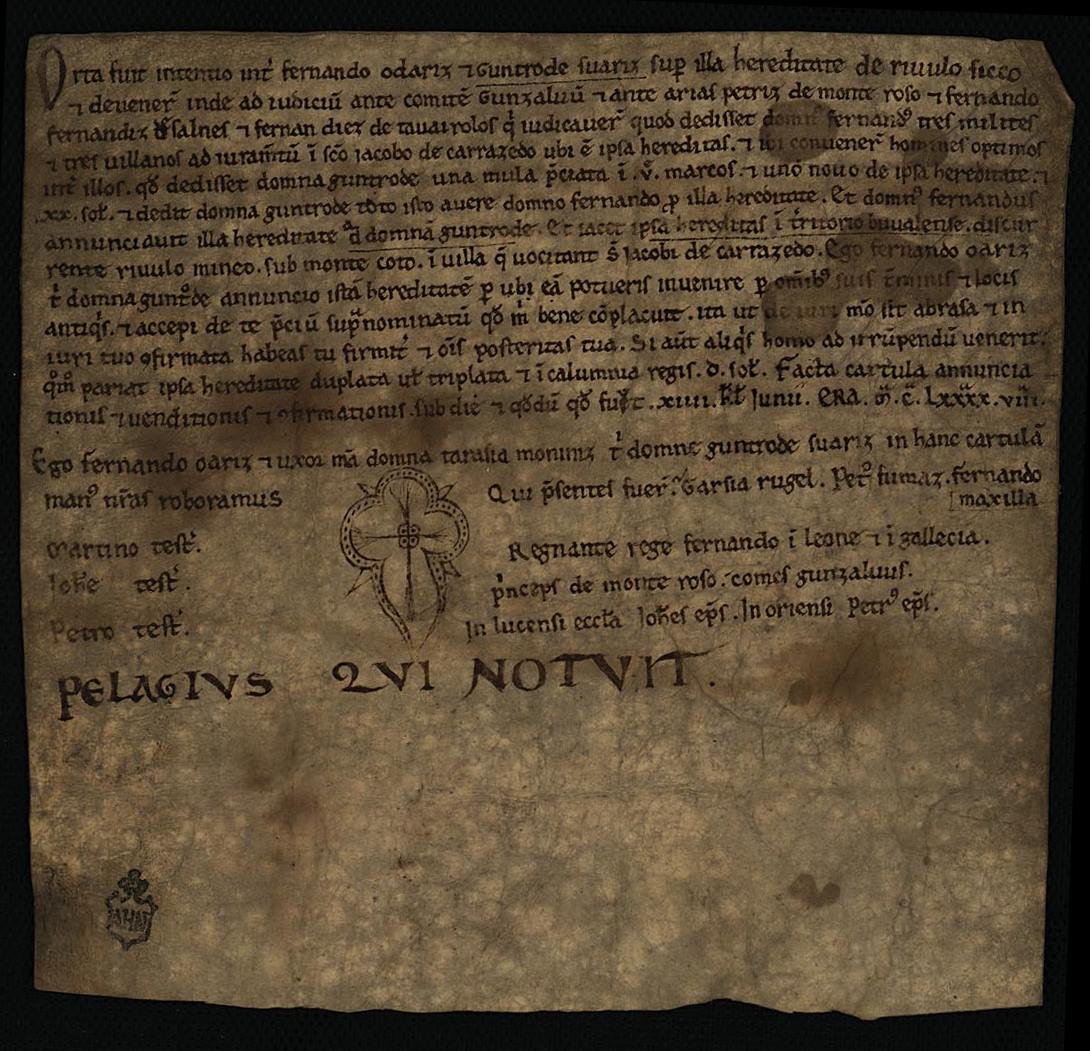 Orta fuit intentio int̄ fernando odariz ⁊ Guntrode suariz sup̄ illa hereditate de riuulo sicco
⁊ deuener̄ inde ad iudiciū ante comitē Gunzaluū ⁊ ante arias petriz de monte roso ⁊ fernando
fernandiz de salnes ⁊ fernan diez de tauairolos q̄ iudicauer̄ quod dedisset domnꝰ fernandꝰ tres milites
⁊ tres uillanos ad iuram̄tū ī sc̄o jacobo de carrazedo ubi ē ipsa hereditas. ⁊ ibi conuener̄ homines optimos
int̄ illos. qd̄ dedisset domna guntrode una mula p̄ciata ī .v. marcos. ⁊ uno nouo de ipsa hereditate. ⁊
.xx. sol̄. ⁊ dedit domna guntrode toto isto auere domno fernando ꝓ illa hereditate. Et domnꝰ fernandus
annunciauit illa hereditate ad domnā guntrode. Et iacet ipsa hereditas ī t̄ritorio buualense. discur
rente riuulo mineo. sub monte coto. ī uilla q̄ uocitant s̄ Jacobi de carrazedo. Ego fernando oariz
t̄ domna gunt̄de annuncio istā hereditatē ꝑ ubi eā potueris inuenire ꝑ om̄ibꝰ suis t̄minis ⁊ locis
antiq̄s. ⁊ accepi de te p̄ciū sup̄nominatū qd̄ m̄ bene cōplacuit. ita ut de iuri mō sit abrasa ⁊ in
iuri tuo ꝯfirmata habeas tu firmit̄ ⁊ om̄s posteritas tua. Si aūt aliq̄s homo ad irrūpendū uenerit.
q̄m pariat ipsa hereditate duplata ul̄ triplata ⁊ ī calumnia regis .d. sol̄. Facta cartula annuncia
tionis ⁊ uenditionis ⁊ ꝯfirmationis. sub die ⁊ qd̄ū qd̄ fuit .xiiii. kl̄ Junii. ERA. m̄. c̄. Lxxxx. viii.
Ego fernando oariz ⁊ uxor mā domna tarasia moniniz t̄ domne guntrode suariz in hanc cartulā
manꝰ nr̄as roboramus
Qui p̄sentes fuer̄. Garsia rugel. Petꝰ fumaz. fernando
maxilla
Martino test̄.
Regnante rege fernando ī leone ⁊ ī gallecia.
Joh̄e test̄.
p̄nceps de monte roso. comes gunzaluus.
Petro test̄.
In lucensi eccl̄a Joh̄es ep̄s. In oriensi Petrꝰ ep̄s.
PELAGIVS QVI NOTVIT.
AHN